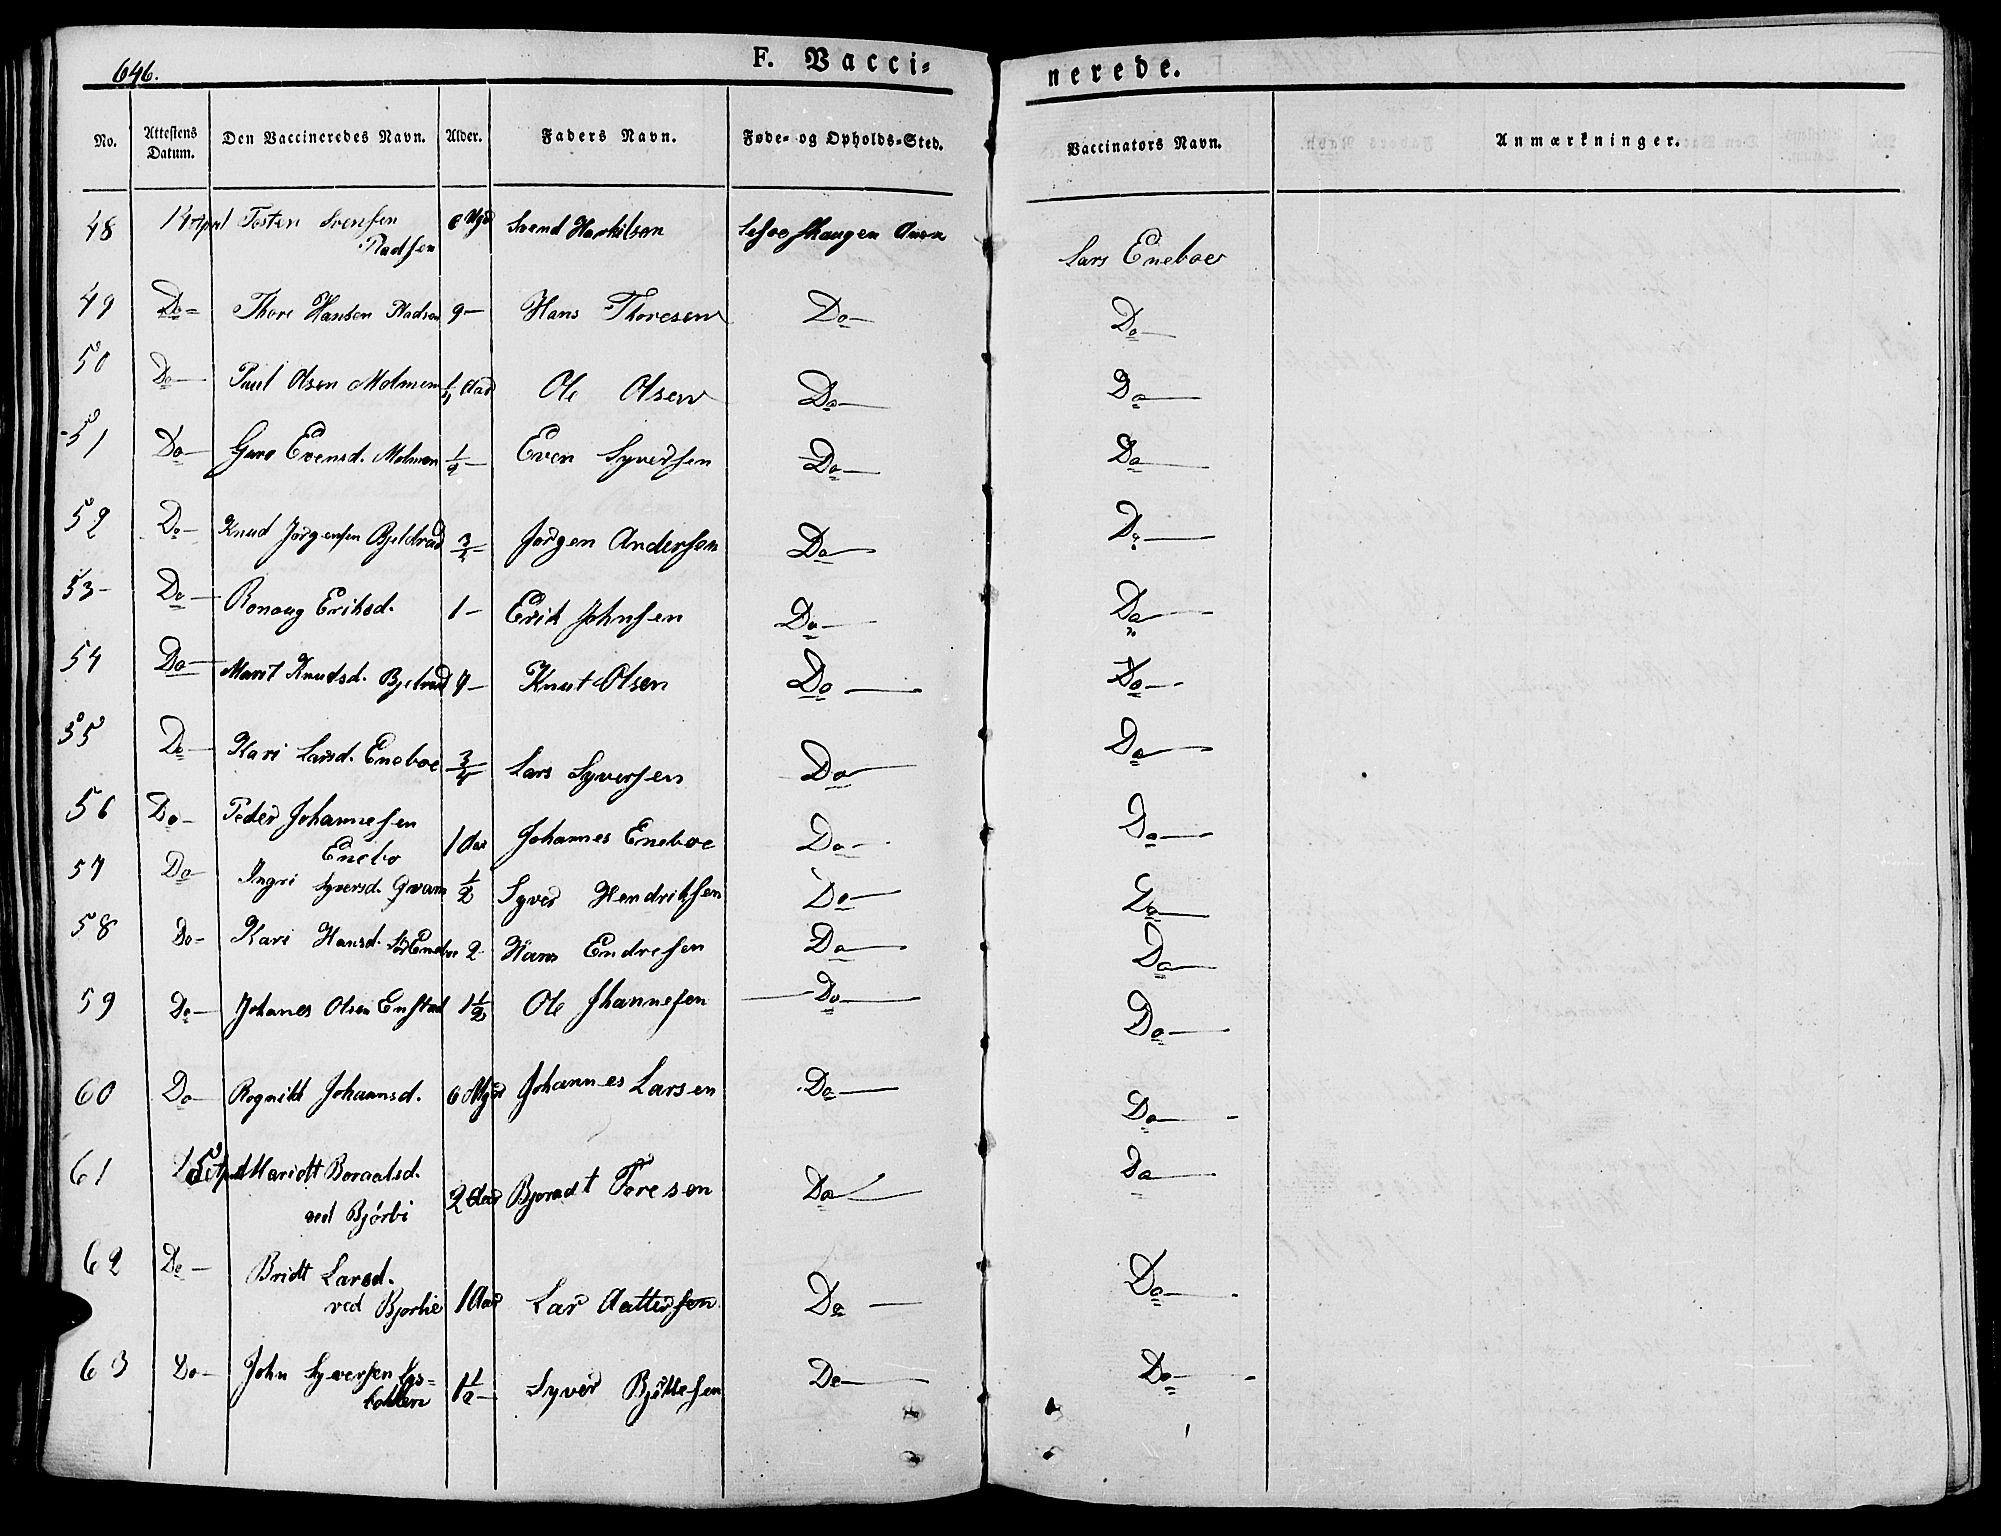 646.
F. Vacci=
nerede.
No. Attestens Datum. Den Vaccineredes Navn. Alder. Faders Navn. Føde- og Opholds-Sted. Vaccinators Navn. Anmærkninger.
48 14 April Tosten Svensen 6 Svend
Lars Eneboe
49 Do- Thore Hansen 9- Hans Thoresen Do- Do-
50 Do- Paul Olsen Molmen Aar Ole Olsen Do- Do-
51 Do- Evensd. Molmen 1/2- Even Syversen Do- Do-
52 Do- Knud Jørgensen 3/4- Jørgen Andersen Do- Do-
53- Do- Ronaug Eriksd. 1- Erik Johnsen Do- Do-
54 Do- Marit Knudsd. Knut Olsen Do- Do-
55 Do- Kari Larsd. Eneboe 3/4- Lars Syversen Do- Do-
56 Do- Peder Johannesen
Enebo 1 Aar Johannes Eneboe Do- Do-
57 Do- Ingri Syversd. Qvam 1/2 Syver Hendriksen Do- Do-
58 Do- Kari Hansd. 2- Hans Endresen Do- Do-
59 Do- Johanes Olsen Enstad 1 1/2 Ole Do- Do-
60 Do- Rognild Johannsd. 6 Johannes Larsen Do- Do-
61 15 April Maridt
ved Bjørli 2 Aar Toresen Do- Do-
62 Do- Bridt Larsd.
ved Bjorlie 1 Aar Lar Do- Do-
63 Do- John Syversen
1 1/2- Syver Do- Do-